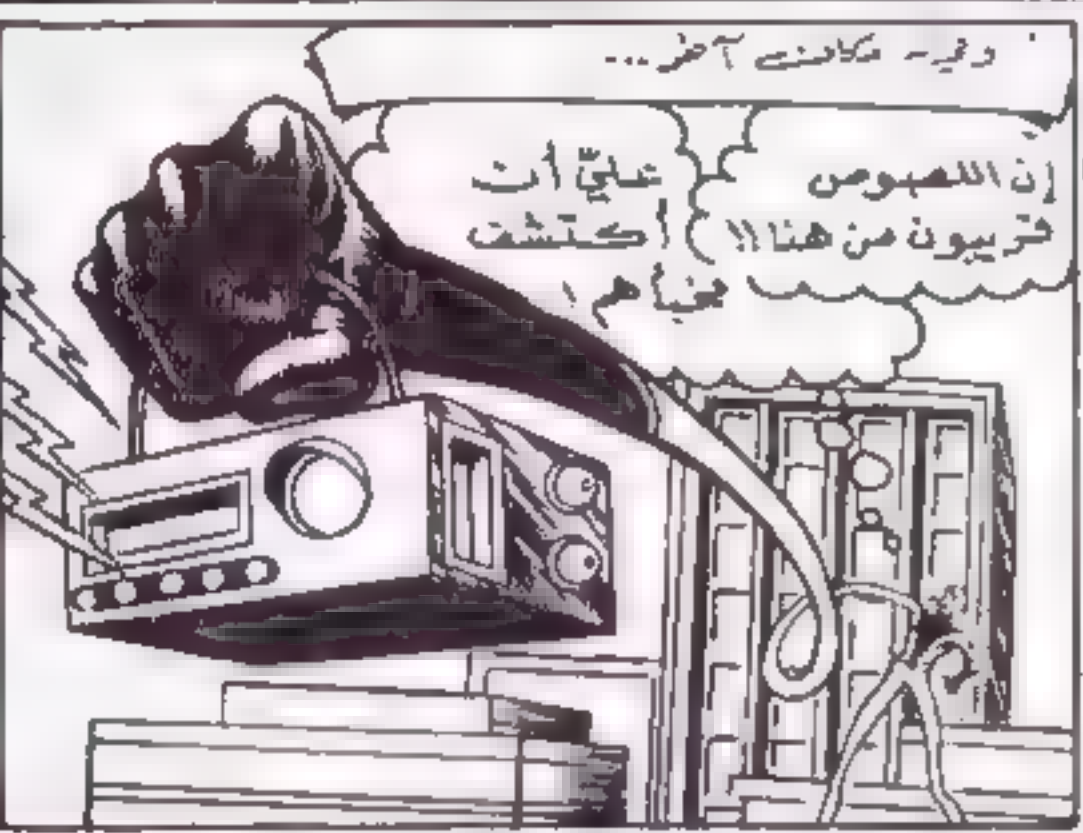 وفي مكان آخر...
إن اللصوص
قريبون من هنا!!
عليّ أن
أكتشف
مخبأهم!